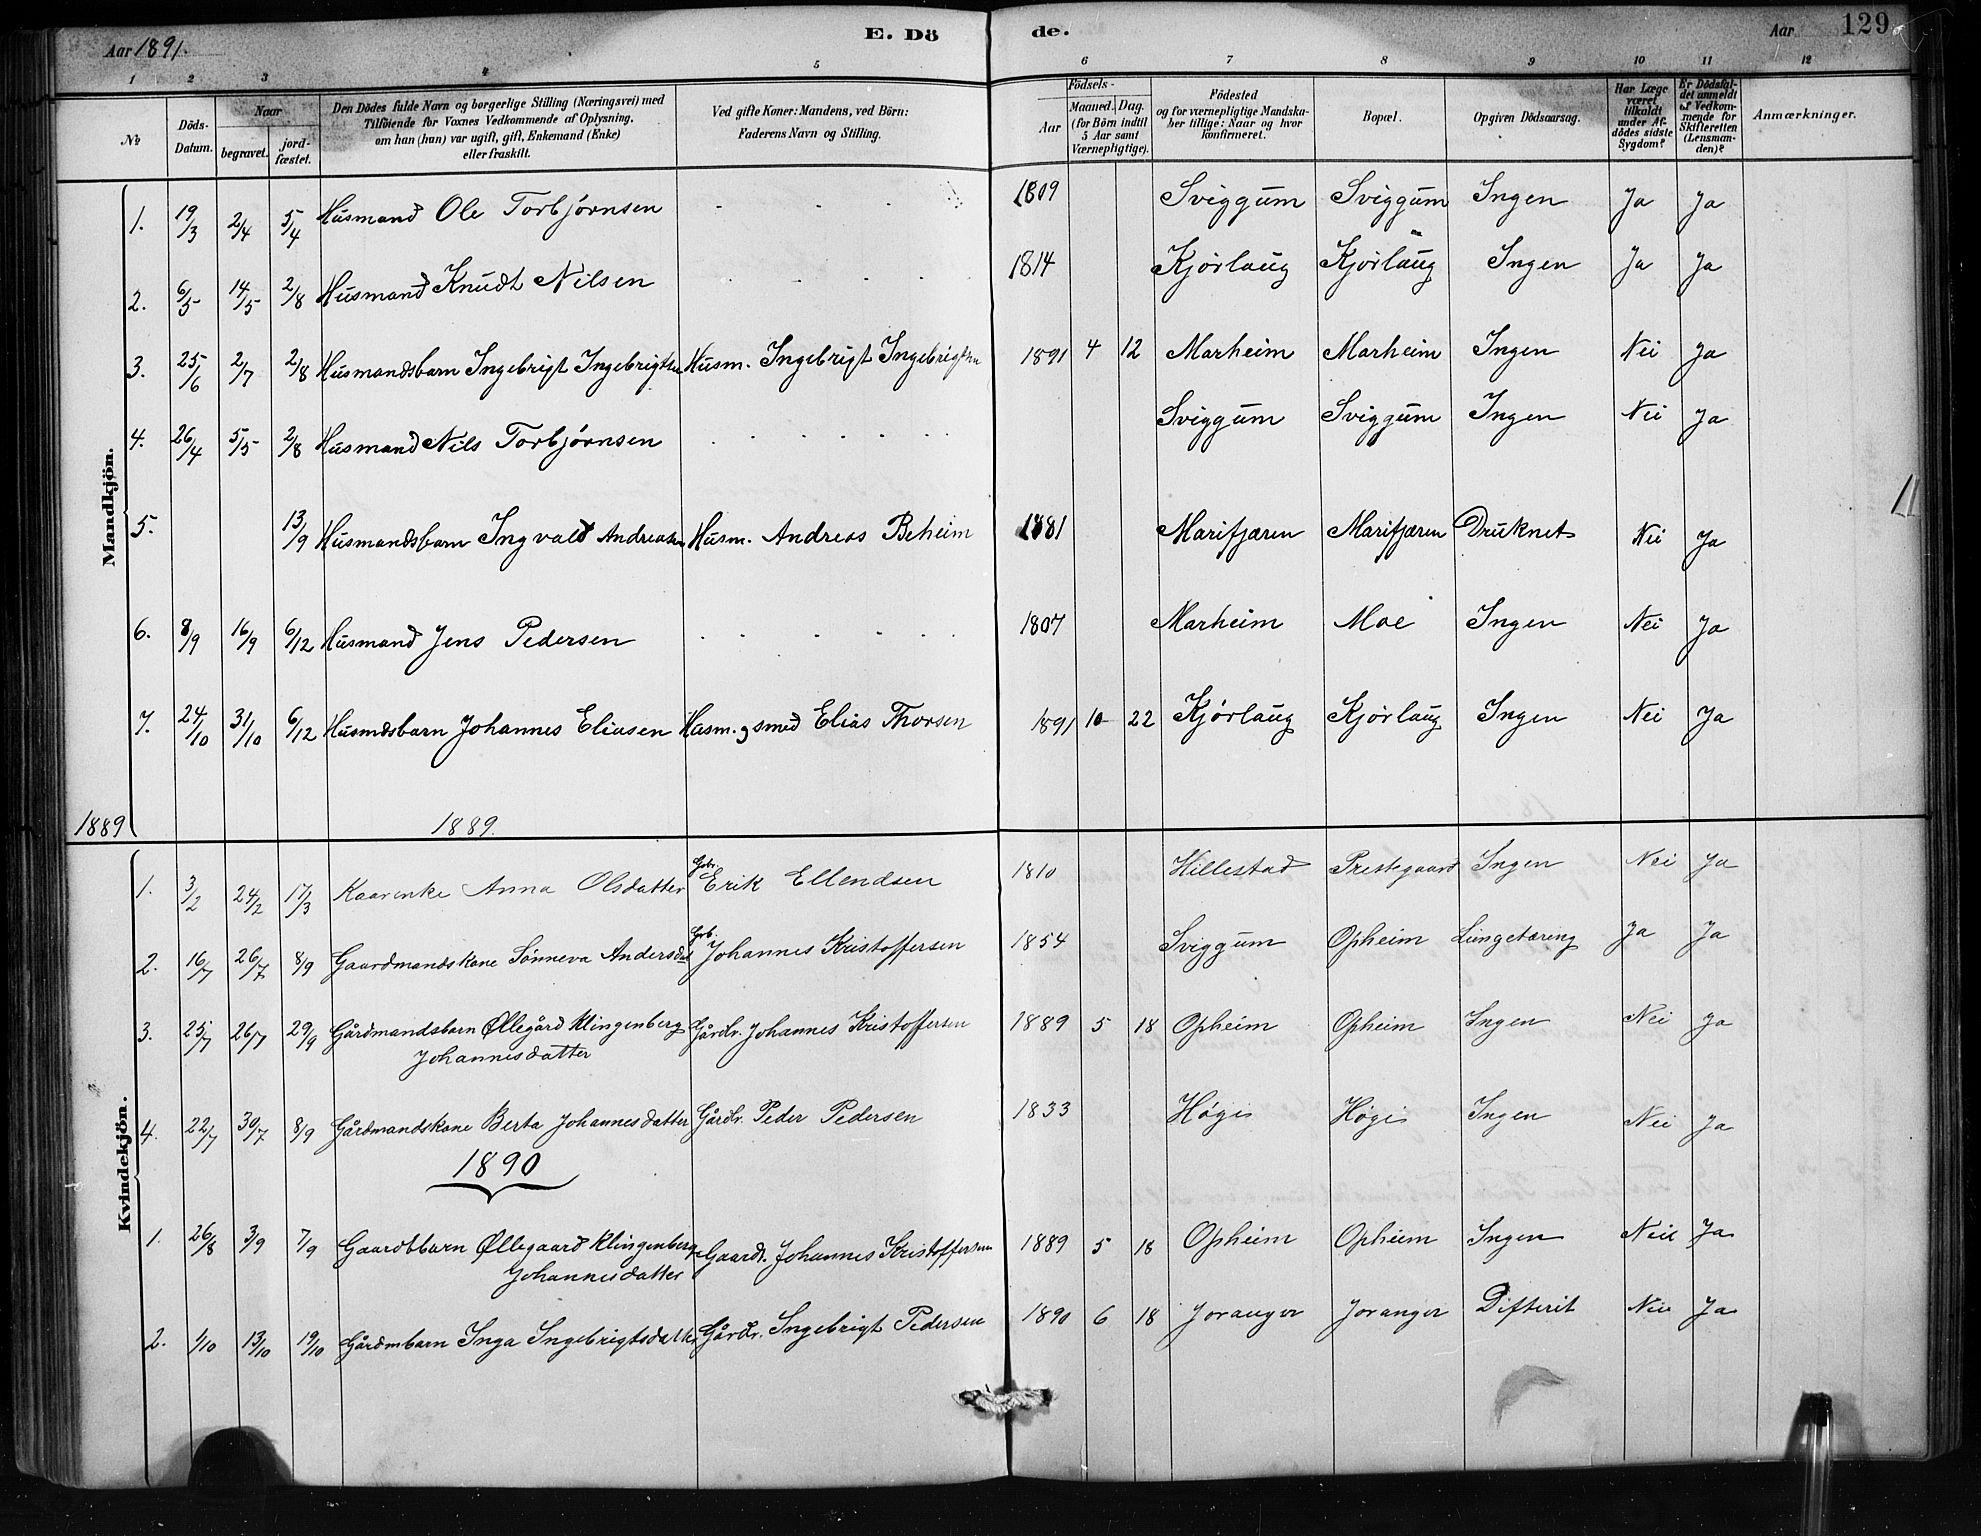 Aar 1891. E. Dö de. Aar 129
1 2 3 4 5 6 7 8 9 10 11 12
No Döds-Datum. Naar begravet. jord-fæstet. Den Dödes fulde Navn og borgerlige Stilling (Næringsvei) med Tilföiende for Voxnes Vedkommende af Oplysning. om han (hun) var ugift, gift, Enkemand (Enke) eller fraskilt. Ved gifte Koner: Mandens, ved Börn: Faderens Navn og Stilling. Födsels- Aar Maaned. Dag. (for Börn indtil 5 Aar samt Værnepligtige). Födested og for værnepligtige Mandskaber tillige: Naar og hvor konfirmeret. Bopæl. Opgiven Dödsaarsag. Har Læge været tilkaldt under Afdödes sidste Sygdom? Er Dödsfaldet anmeldt af Vedkommende for Skifteretten (Lensmanden)? Anmærkninger.
Mandkjön.
1. 19/3 2/4 5/4 Husmand Ole Torbjørnsen 1809 Sviggum Sviggum Ingen Ja Ja
2. 6/5 14/5 2/8 Husmand Knudt Nilsen 1814 Kjørlaug Kjørlaug Ingen Ja Ja
3. 25/6 2/7 2/8 Husmandsbarn Ingebrigt Ingebrigtsen Husm. Ingebrigt Ingebrigtsen 1891 4 12 Marheim Marheim Ingen Nei Ja
4. 26/4 5/5 2/8 Husmand Nils Torbjørnsen Sviggum Sviggum Ingen Nei Ja
5. 13/9 Husmandsbarn Ingvald Andreasen Husm. Andreas Beheim 1881 Marifjæren Marifjæren Druknet Nei Ja
6. 8/9 16/9 6/12 Husmand Jens Pedersen 1807 Marheim Moe Ingen Nei Ja
7. 24/10 31/10 6/12 Husmdsbarn Johannes Eliasen Husm. og smed Elias Thorsen 1891 10 22 Kjørlaug Kjørlaug Ingen Nei Ja
1889 1889.
Kvindekjön.
1. 3/2 24/2 17/3 Kaarenke Anna Olsdatter Gbr. Erik Ellendsen 1810 Hillestad Prestegaard Ingen Nei Ja
2. 16/7 26/7 8/9 Gaardmandskone Sønneva Andersdat Grb. Johannes Kristoffersen 1854 Sviggum Opheim Lungetæring Ja Ja
3. 25/7 26/7 29/9 Gårdmandsbarn Øllegård Klingenberg Gårdbr. Johannes Kristoffersen 1889 5 18 Opheim Opheim Ingen Nei Ja
Johannesdatter
4. 22/7 30/7 8/9 Gårdmandskone Berta Johannesdatter Gårdbr. Peder Pedersen 1833 Høgi Høgi Ingen Nei Ja
1890
1. 26/8 3/9 7/9 Gaardbbarn Øllegaard Klingenberg Gaardr. Johannes Kristoffersen 1889 5 18 Opheim Opheim Ingen Nei Ja
Johannesdatter
2. 1/10 13/10 19/10 Gårdmbarn Inga Ingebrigtsdatter Gårdbr. Ingebrigt Pedersen 1890 6 18 Joranger Joranger Difterit Nei Ja